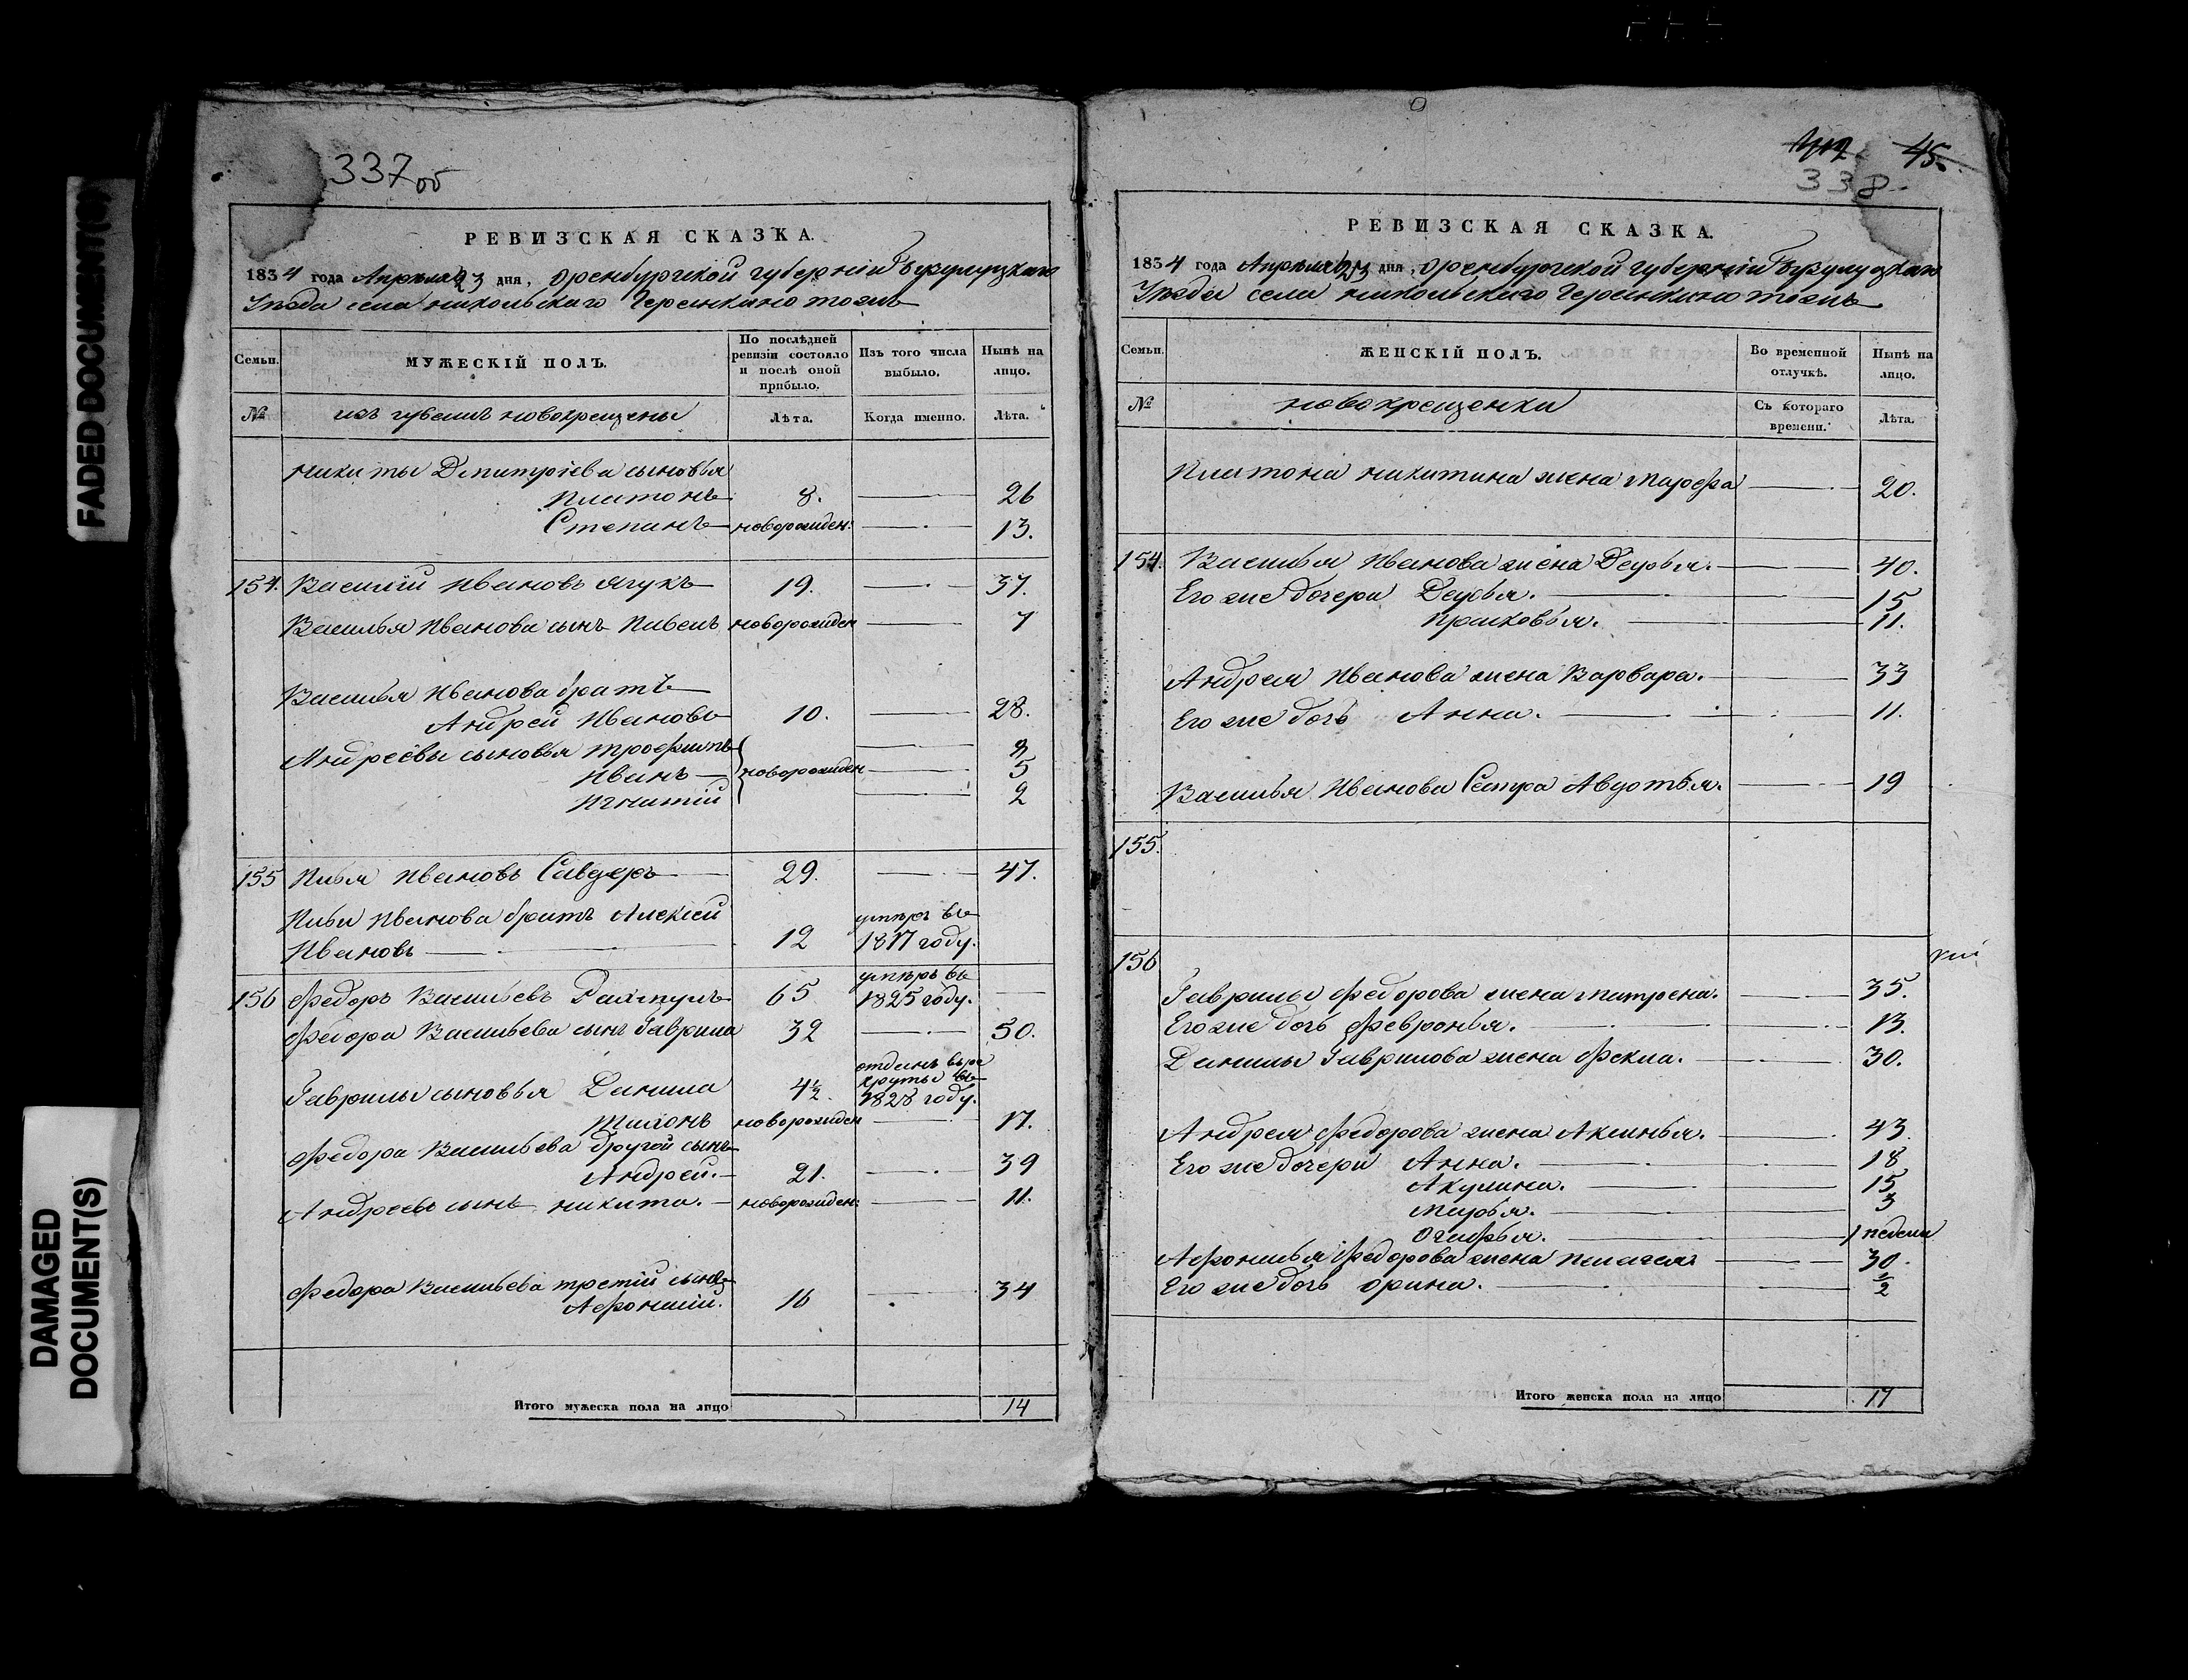 FADED DOCUMENT(S)
DAMAGED
DOCUMENT(S)
337об
РЕВИЗСКАЯ СКАЗКА.
1834 года Апреля 23 дня, Оренбургской губерніи Бугульмскаго
Уезда села Никольскаго тожъ
Семьи.
МУЖЕСКІЙ ПОЛЪ.
По послѣдней ревизіи состояло и послѣ оной прибыло.
Изъ того числа выбыло.
Нынѣ на лицо.
№
изъ чувашъ новокрещены
Лѣта.
Когда именно.
Лѣта.
Никиты Дмитріева сыновья
Платонъ 8. 26
Степанъ новорожден: 13.
154. Василій Ивановъ 19. 37.
Василья Иванова сынъ Павелъ новорожден 7
Василья Иванова братъ
Андрей Ивановъ 10. 28.
Андреевы сыновья Трофимъ
Иванъ новорожден 5
Игнатій 2
155 Илья Ивановъ 29. 47.
Ильи Иванова братъ Алексей
Ивановъ 12 умеръ въ 1817 году.
156 Федоръ Васильевъ 65 умеръ въ 1825 году.
Федора Васильева сынъ Гаврила 32 50.
Гаврилы сыновья Данила 4½. отданъ въ рекруты въ 1828 году.
Тихонъ новорожден 17.
Федора Васильева другой сынъ
Андрей. 21. 39
Андреевъ сынъ Никита. новорожден: 11.
Федора Васильева третій сынъ
Афонасій. 16 34
Итого мужеска пола на лицо 14
45.
338.
РЕВИЗСКАЯ СКАЗКА.
1834 года Апреля 23 дня, Оренбургской губерніи
Уезда села Никольскаго тожъ
Семьи.
ЖЕНСКІЙ ПОЛЪ.
Во временной отлучкѣ.
Нынѣ на лицо.
№
новокрещенки
Съ котораго времени.
Лѣта.
Платона Никитина жена Марфа 20.
154. Василья Иванова жена Дарья. 40.
Его же дочери Дарья. 15
Прасковья. 11.
Андрея Иванова жена Варвара. 33
Его же дочь Анна. 11.
Василья Иванова Сестра Авдотья. 19
155.
156
Гаврилы Федорова жена Матрена. 35.
Его же дочь Февронья. 13.
Данилы Гаврилова жена Фекла. 30.
Андрея Федорова жена Аксинья. 43
Его же дочери Анна. 18
Акулина. 15
Марья. 3
Огафья. 1 недели
Афонасья Федорова жена Пелагея 30.
Его же дочь Орина. ½
Итого женска пола на лицо 17